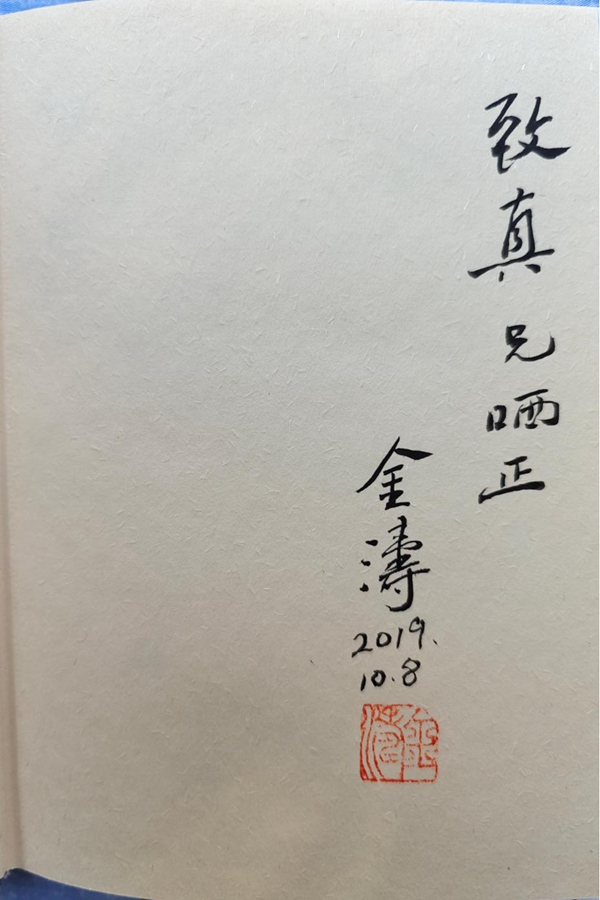 致真兄哂正
金濤
2019.
10.8
金濤